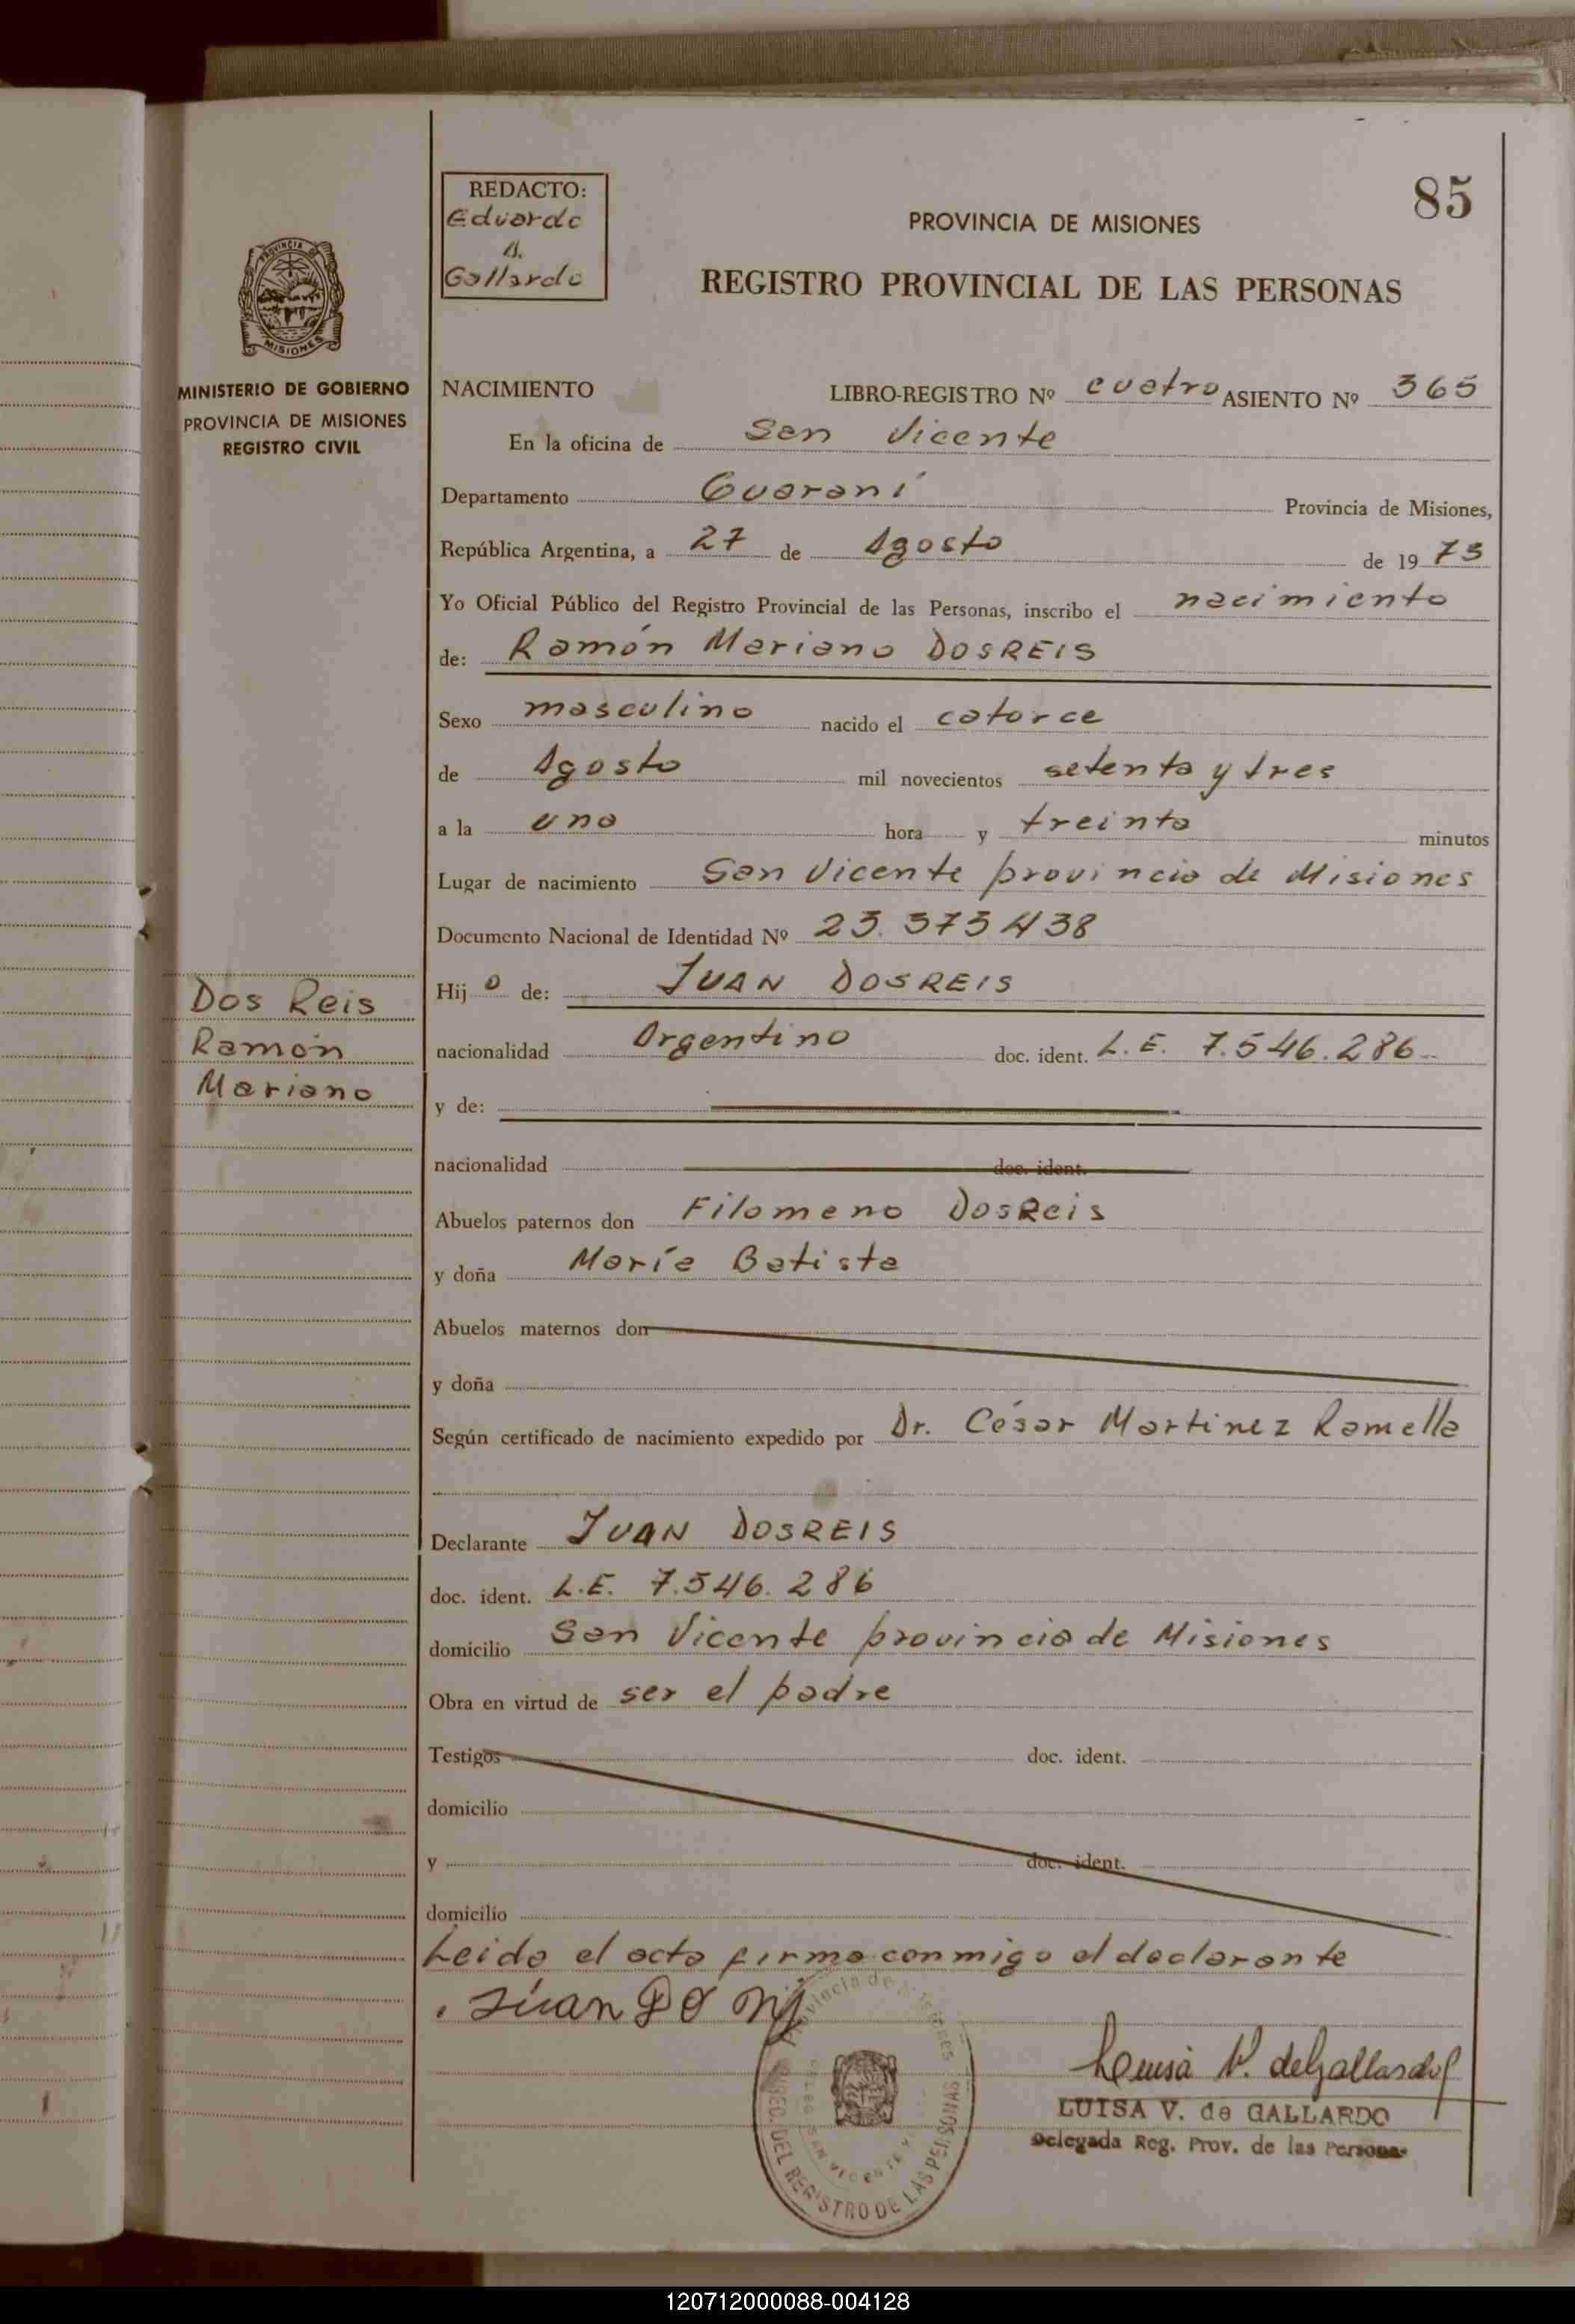 85
REDACTO:
Eduardo
A.
Gallardo
PROVINCIA DE MISIONES
REGISTRO PROVINCIAL DE LAS PERSONAS
PROVINCIA DE
MISIONES
MINISTERIO DE GOBIERNO
PROVINCIA DE MISIONES
REGISTRO CIVIL
NACIMIENTO LIBRO-REGISTRO Nº cuatro ASIENTO Nº 365
En la oficina de San Vicente
Departamento Guaraní Provincia de Misiones,
República Argentina, a 27 de Agosto de 1973
Yo Oficial Público del Registro Provincial de las Personas, inscribo el nacimiento
de: Ramón Mariano DOSREIS
Sexo masculino nacido el catorce
de Agosto mil novecientos setenta y tres
a la una hora y treinta minutos
Lugar de nacimiento San Vicente provincia de Misiones
Documento Nacional de Identidad Nº 23.373438
Hijo de: JUAN DOSREIS
nacionalidad Argentino doc. ident. L.E. 7.546.286
y de:
nacionalidad doc. ident.
Dos Reis
Ramón
Mariano
Abuelos paternos don Filomeno DosReis
y doña María Batista
Abuelos maternos don
y doña
Según certificado de nacimiento expedido por Dr. César Martinez Ramella
Declarante JUAN DOSREIS
doc. ident. L.E. 7.546.286
domicilio San Vicente provincia de Misiones
Obra en virtud de ser el padre
Testigos doc. ident.
domicilio
y doc. ident.
domicilio
Leida el acta firma conmigo el declarante
Juan
Provincia de Misiones
DIREC. DEL REGISTRO DE LAS PERSONAS
SAN VICENTE
Luisa V. de Gallardo
LUISA V. de GALLARDO
Delegada Reg. Prov. de las Personas
120712000088-004128